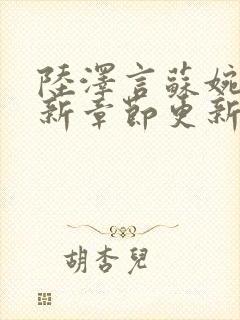 陸澤言蘇婉
新章節更新
胡杏兒